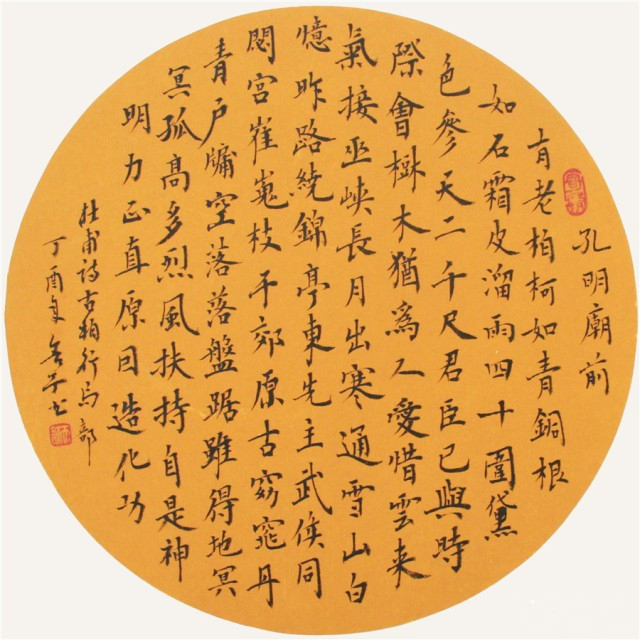 孔明廟前
有老柏柯如青銅根
如石霜皮溜雨四十圍黛
色參天二千尺君臣已與時
際會樹木猶爲人愛惜雲来
氣接巫峽長月出寒通雪山白
憶昨路繞錦亭東先主武侯同
閟宮崔嵬枝干郊原古窈窕丹
青戶牖空落落盤踞雖得地冥
冥孤高多烈風扶持自是神
明力正直原因造化功
杜甫詩古柏行局部
丁酉夏书